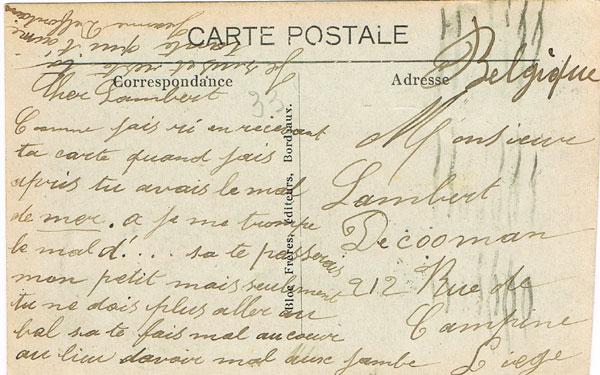 CARTE POSTALE
Correspondance
Adresse
Belgique
33
Cher Lambert
Comme jais ri en recevant
ta carte quand jais
apris tu avais le mal
de mer. a je me trompe
le mal d'.... sa te passerais
mon petit mais seulement
tu ne dois plus aller au
bal sa te fais mal au cœur
au lieu davoir mal aux jambe
Je suis et reste
ta
qui t'aime
Jeanne
Bloc Frères, éditeurs, Bordeaux.
Monsieur
Lambert
Decooman
212 Rue de
Campine
Liege